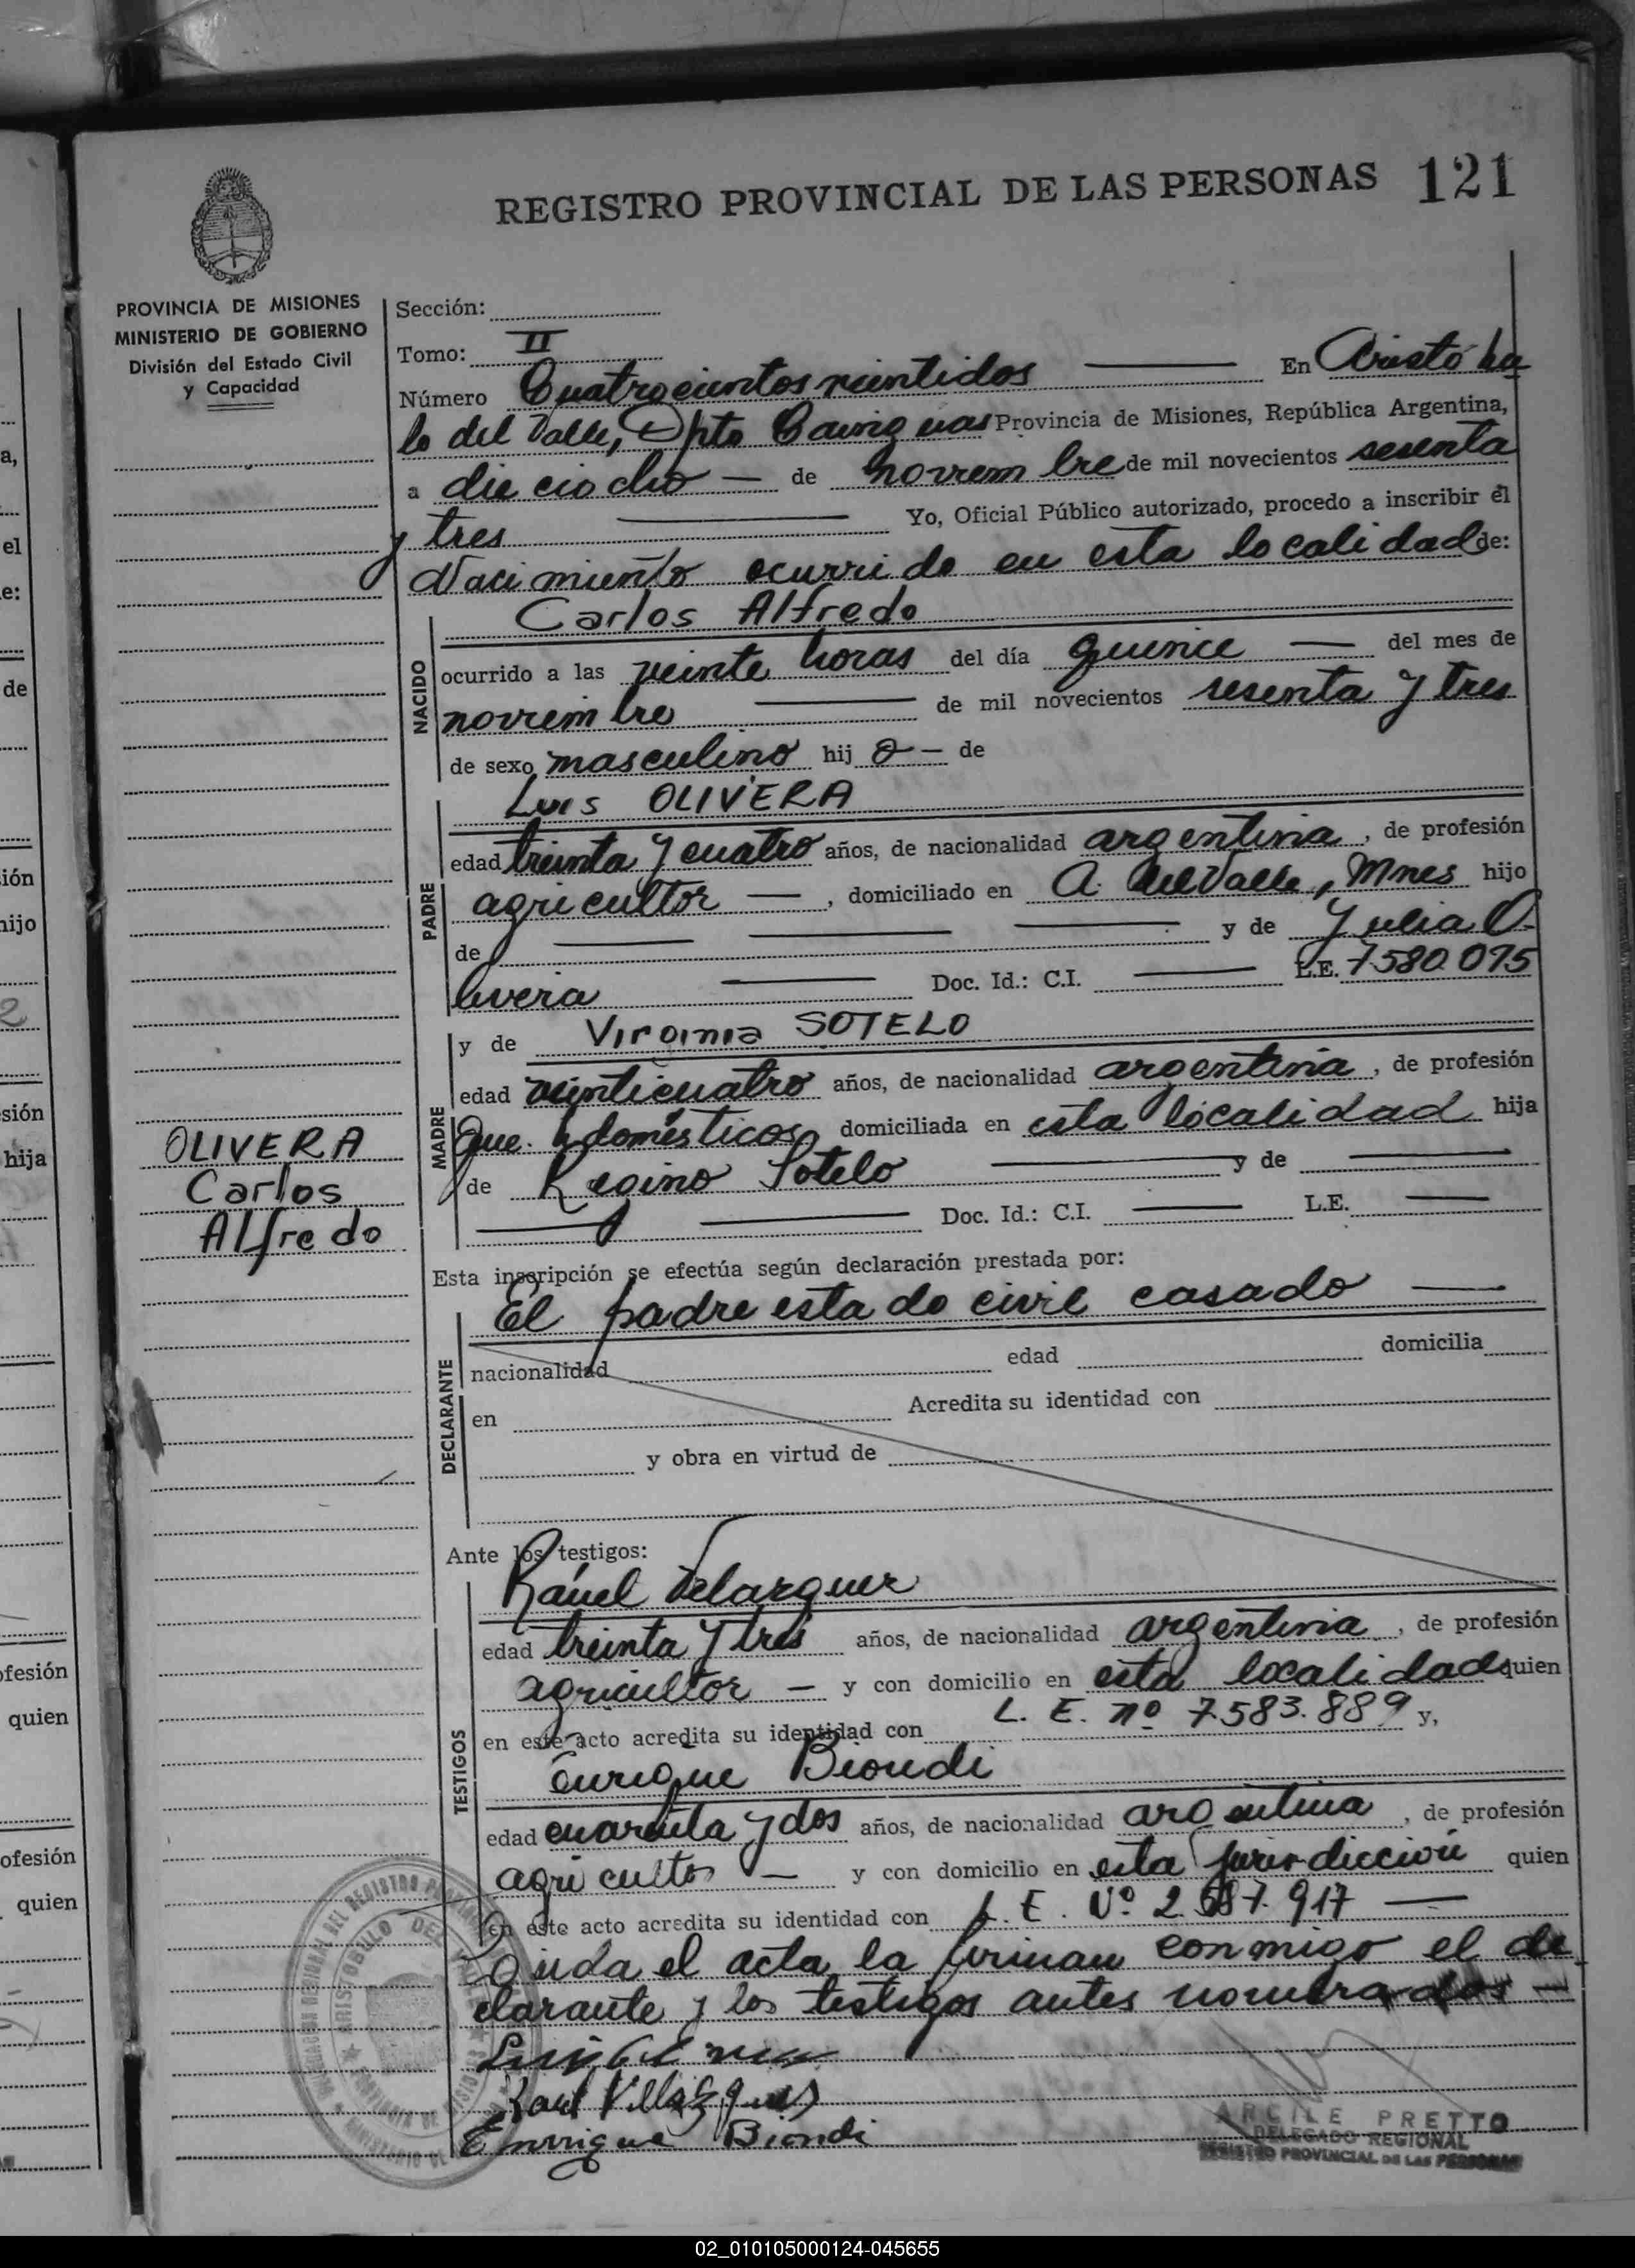 REGISTRO PROVINCIAL DE LAS PERSONAS 121
PROVINCIA DE MISIONES
MINISTERIO DE GOBIERNO
División del Estado Civil
y Capacidad
Sección:
Tomo: II
Número Cuatrocientos veintidos En Aristóbu
lo del Valle, Dpto Cainguas Provincia de Misiones, República Argentina,
a dieciocho — de noviembre de mil novecientos sesenta
y tres Yo, Oficial Público autorizado, procedo a inscribir el
Nacimiento ocurrido en esta localidad de:
Carlos Alfredo
NACIDO
ocurrido a las veinte horas del día quince — del mes de
noviembre de mil novecientos sesenta y tres
de sexo masculino hij o — de
Luis OLIVERA
PADRE
edad treinta y cuatro años, de nacionalidad argentina, de profesión
agricultor —, domiciliado en A. del Valle, Mnes hijo
de — y de Julia O-
livera — Doc. Id.: C.I. — L.E. 7580.075
MADRE
y de Virginia SOTELO
edad veinticuatro años, de nacionalidad argentina, de profesión
Que. domésticos domiciliada en esta localidad hija
de Regino Sotelo — y de —
— Doc. Id.: C.I. — L.E. —
OLIVERA
Carlos
Alfredo
Esta inscripción se efectúa según declaración prestada por:
El padre estado civil casado —
DECLARANTE
nacionalidad edad domicilia
en Acredita su identidad con
y obra en virtud de
Ante los testigos:
Raúl Velazquez
TESTIGOS
edad treinta y tres años, de nacionalidad argentina, de profesión
agricultor — y con domicilio en esta localidad quien
en este acto acredita su identidad con L. E. nº 7.583.889 y,
Enrique Biondi
edad cuarenta y dos años, de nacionalidad argentina, de profesión
agricultor — y con domicilio en esta jurisdicción quien
en este acto acredita su identidad con L. E. Nº 2. 917 —
Leida el acta la firman conmigo el de
clarante y los testigos antes nombrados —
Raul
Enrrique Biondi
ARCILE PRETTO
DELEGADO REGIONAL
REGISTRO PROVINCIAL DE LAS PERSONAS
02_010105000124-045655